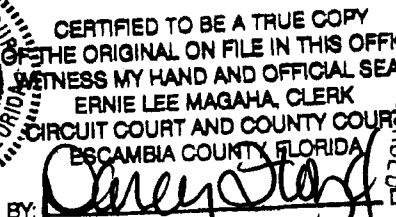 CERTIFIED TO BE A TRUE COPY
OF THE ORIGINAL ON FILE IN THIS OFFI
WITNESS MY HAND AND OFFICIAL SEA
ERNIE LEE MAGAHA, CLERK
CIRCUIT COURT AND COUNTY COUR
ESCAMBIA COUNTY FLORIDA
BY: